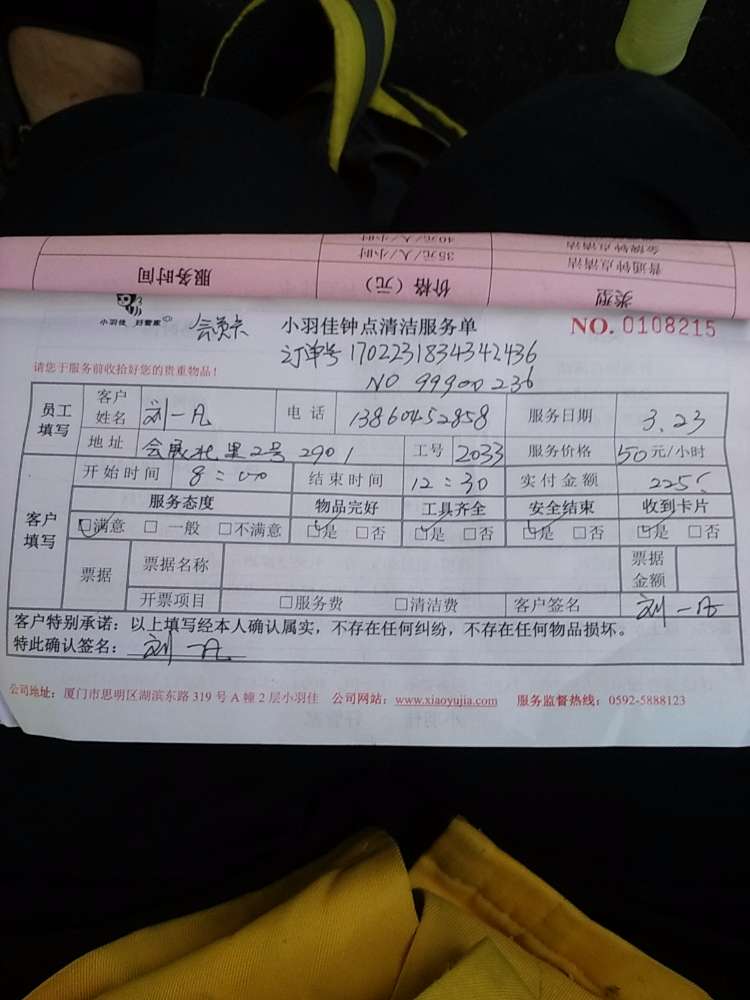 40元/人/小时 金牌钟点清洁
35元/人/小时 普通钟点清洁
服务时间 价格（元） 类型
小羽佳 好管家 会员卡 小羽佳钟点清洁服务单 NO. 0108215
订单号 1702231834342436
请您于服务前收拾好您的贵重物品！ NO 99900236
员工填写 客户姓名 刘一凡 电话 13860452858 服务日期 3.23
地址 会展北里2号2901 工号 2033 服务价格 50元/小时
客户填写 开始时间 8:00 结束时间 12:30 实付金额 225
服务态度 物品完好 工具齐全 安全结束 收到卡片
☑满意 □一般 □不满意 ☑是 □否 ☑是 □否 ☑是 □否 ☑是 □否
票据 票据名称 票据金额
开票项目 □服务费 □清洁费 客户签名 刘一凡
客户特别承诺：以上填写经本人确认属实，不存在任何纠纷，不存在任何物品损坏。
特此确认签名：刘一凡
公司地址：厦门市思明区湖滨东路319号A幢2层小羽佳 公司网站：www.xiaoyujia.com 服务监督热线：0592-5888123